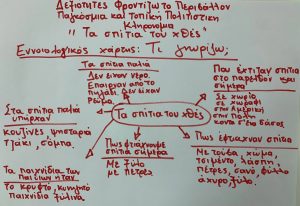 Δεξιότητες Φροντίζω το Περιβάλλον
Παγκόσμια και Τοπική Πολιτιστική
Κληρονομιά
"Τα σπίτια του χθες"
Εννοιολογικός χάρτης: Τι γνωρίζω;
Τα σπίτια παλιά
Δεν είχαν νερό.
Έπαιρναν από το
πηγάδι. Δεν είχαν
ρεύμα.
Που έχτιζαν σπίτια
στο παρελθόν και
σήμερα
Σε χωριό
σε χωράφι
στην ερημιά
στην πόλη
κοντά στο δάσος
Στα σπίτια παλιά
υπήρχαν
κουζίνες, ψησταριά
τζάκι, σόμπα.
Τα σπίτια του χθες
Τα παιχνίδια των
παιδιών ήταν
το κρυφτό, κυνηγητό
παιχνίδια ξύλινα.
Πως φτιάχνουμε
σπίτια σήμερα
Με ξύλο
με πέτρες
Πως έφτιαχναν σπίτια
Με τούβλα, χώμα,
τσιμέντο, λάσπη,
πέτρες, σανό, φύλλα
άχυρο, ξύλο.